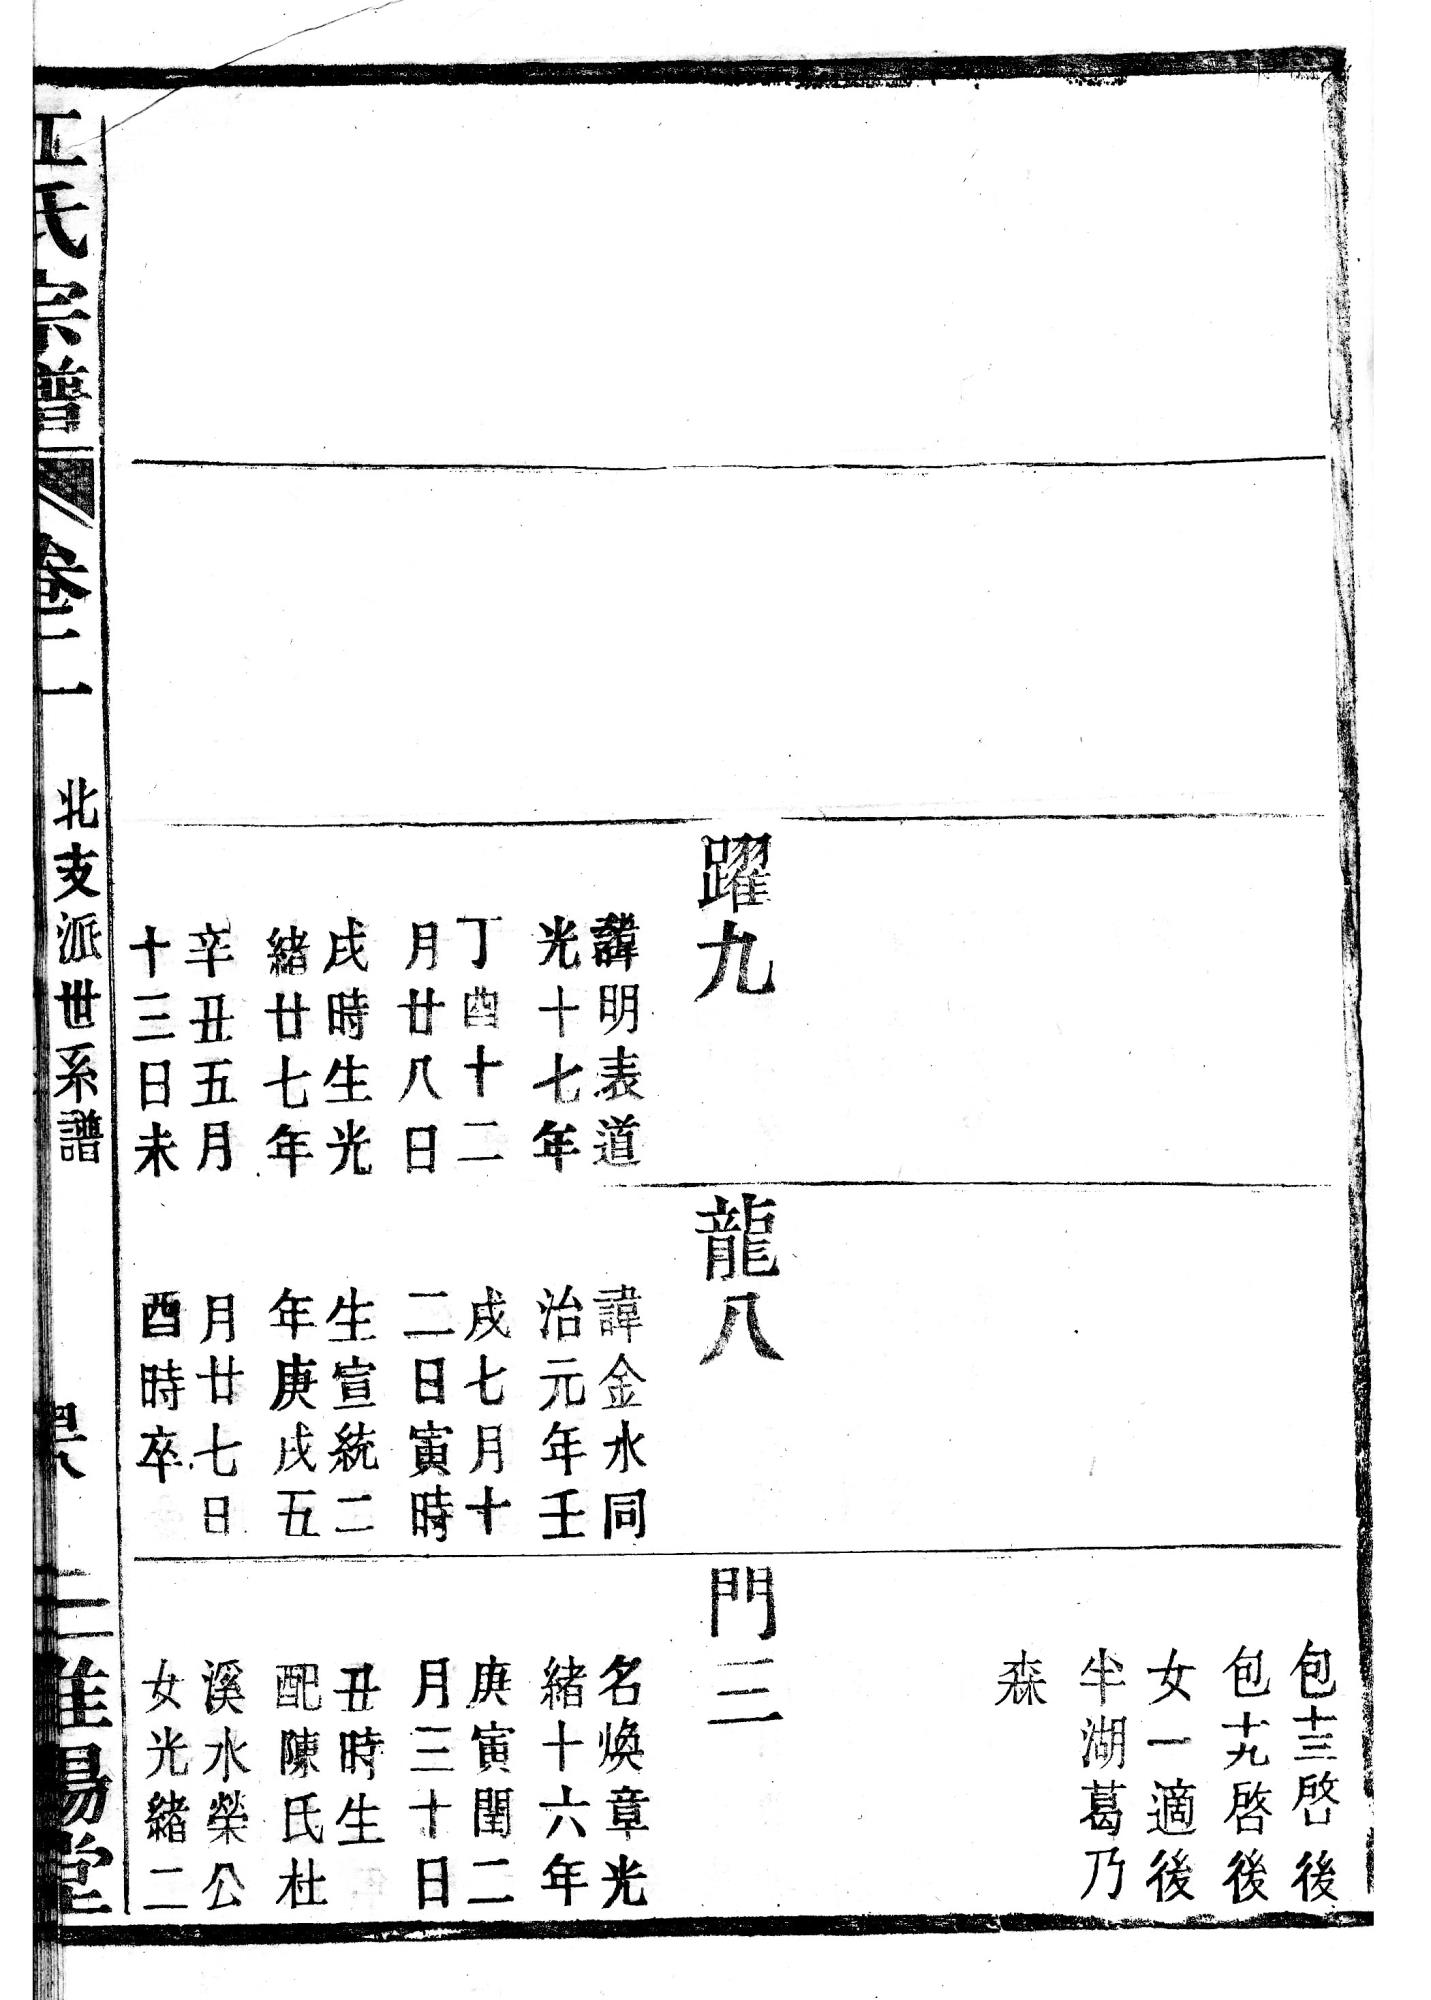 躍九
諱明表道
光十七年
丁酉十二
月廿八日
戌時生光
緒廿七年
辛丑五月
十三日未
龍八
諱金水同
治元年壬
戌七月十
二日寅時
生宣統二
年庚戌五
月廿七日
酉時卒
包十三啓後
包十九啓後
女一適後
半湖葛乃
森
門三
名煥章光
緒十六年
庚寅閏二
月三十日
丑時生
配陳氏杜
溪水榮公
女光緒二
江氏宗譜
卷
北支派世系譜
陽堂